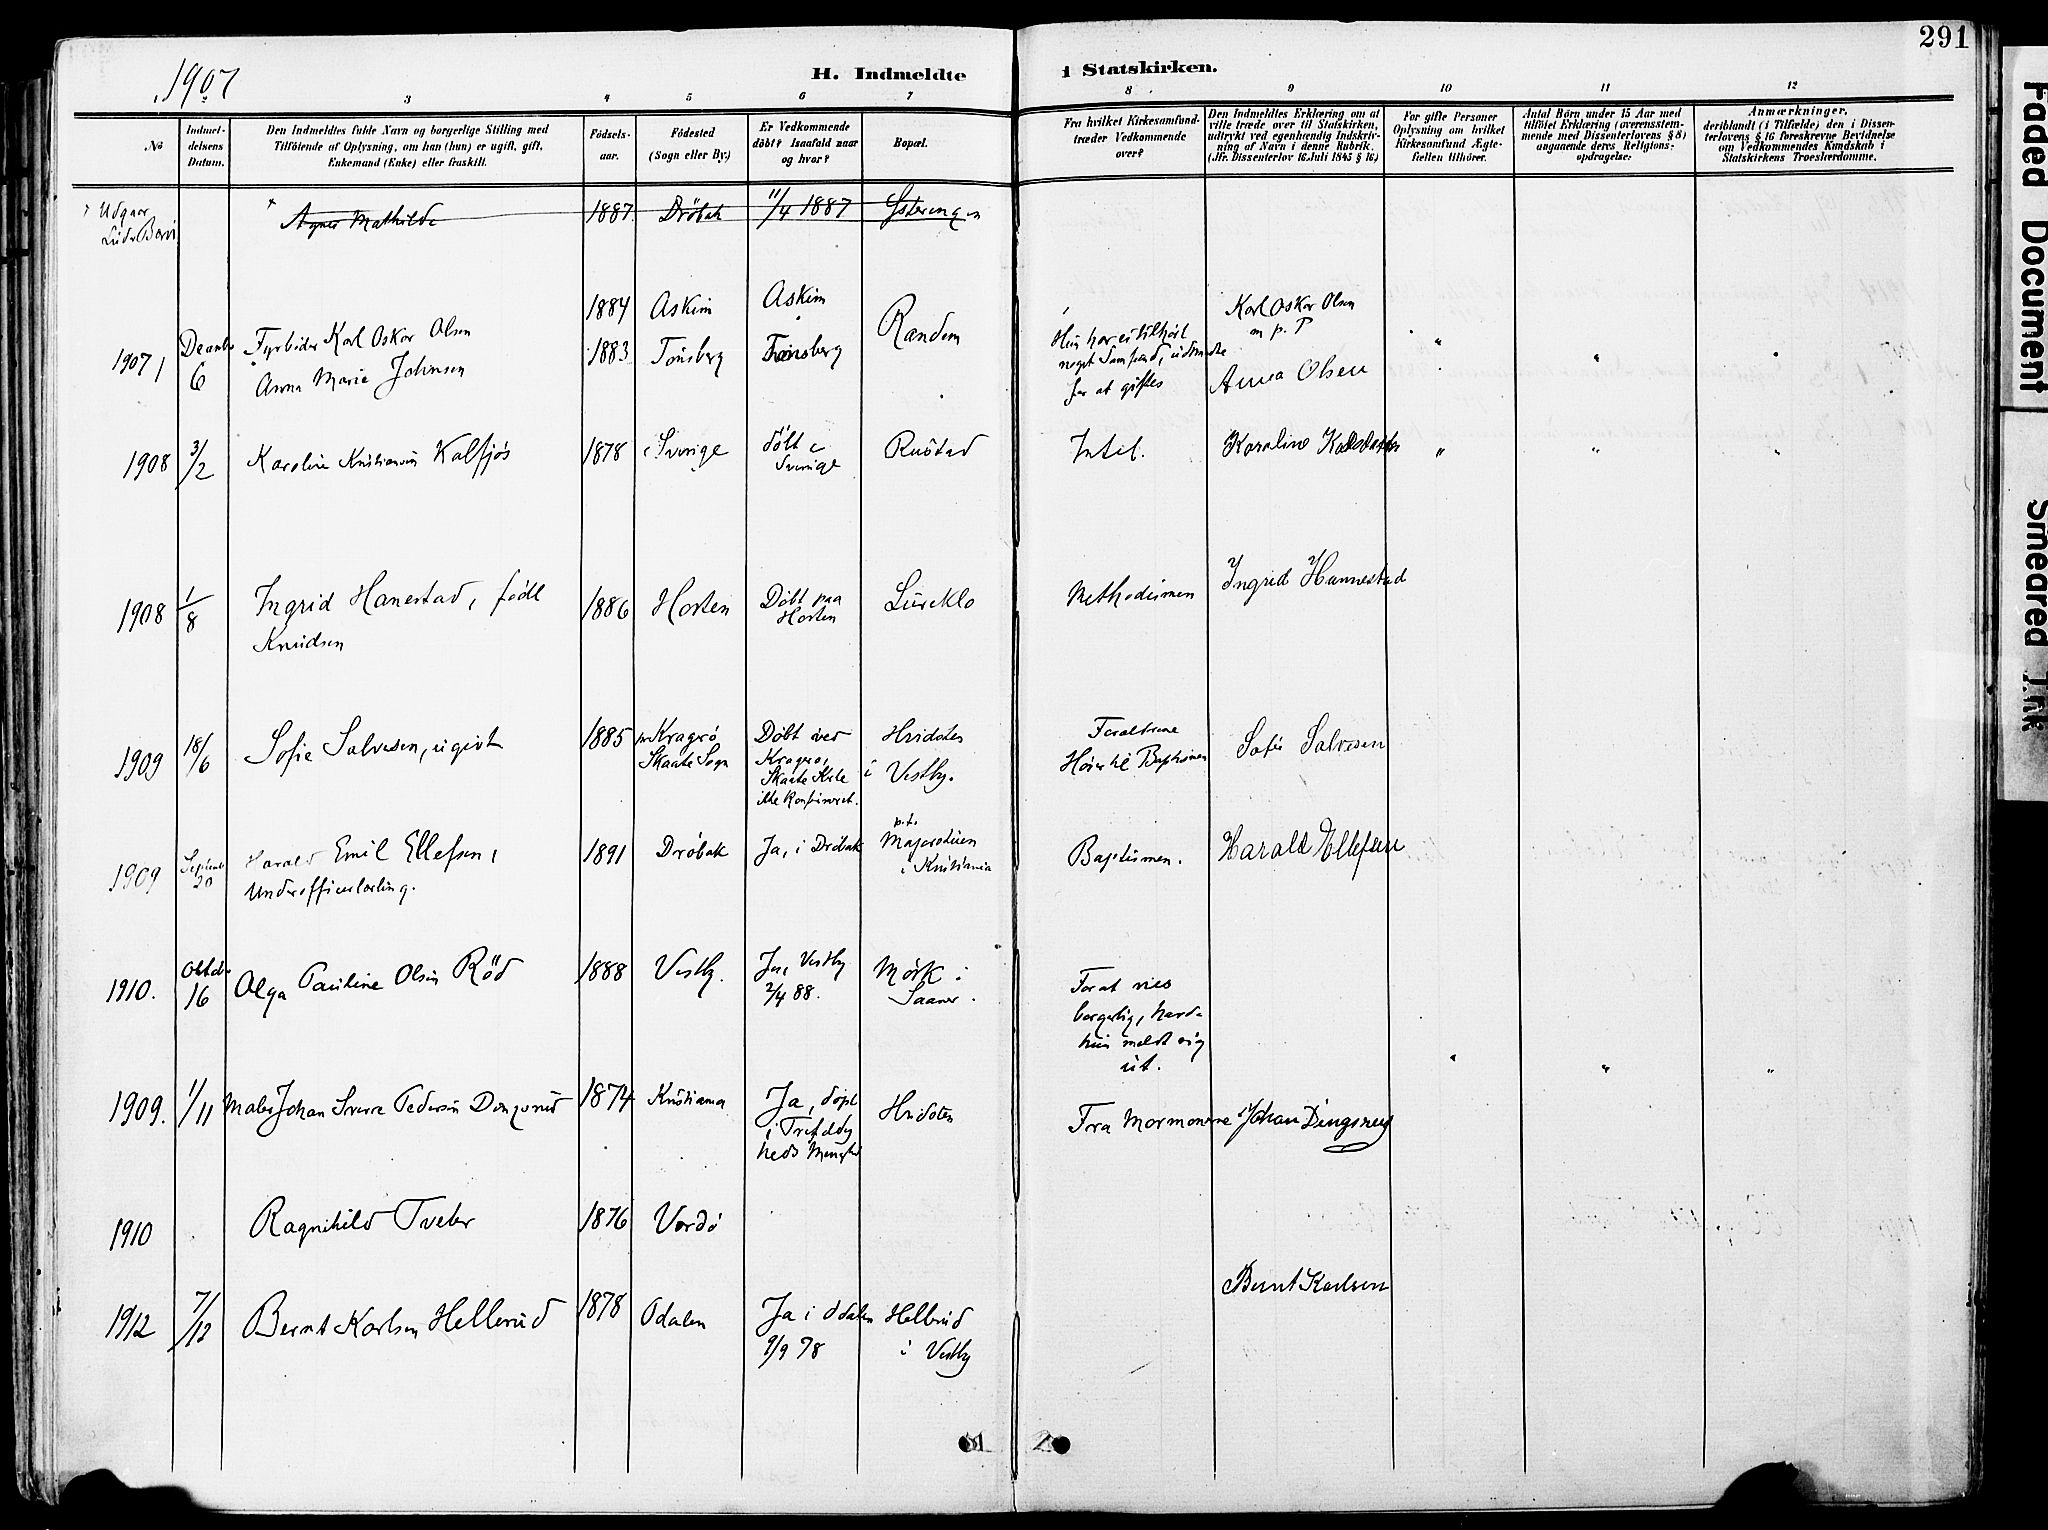 291
1907
H. Indmeldte i Statskirken.
1 2 3 4 5 6 7 8 9 10 11 12
No
Indmel-
delsens
Datum.
Den Indmeldtes fulde Navn og borgerlige Stilling med
Tilföiende af Oplysning, om han (hun) er ugift, gift,
Enkemand (Enke) eller fraskilt.
Födsels-
aar.
Födested
(Sogn eller By.)
Er Vedkommende
döbt? Isaafald naar
og hvor?
Bopæl.
Fra hvilket Kirkesamfund
træder Vedkommende
over?
Den Indmeldtes Erklæring om at
ville træde over til Statskirken,
udtrykt ved egenhændig Indskriv-
ning af Navn i denne Rubrik.
(Jfr. Dissenterlov 16 Juli 1845 § 16.)
For gifte Personer
Oplysning om hvilket
Kirkesamfund Ægte-
fællen tilhörer.
Antal Börn under 15 Aar med
tilföiet Erklæring (overensstem-
mende med Dissenterlovens § 8)
angaaende deres Religions-
opdragelse.
Anmærkninger,
deriblandt (i Tilfælde) den i Dissen-
terlovens § 16 foreskrevne Bevidnelse
om Vedkommendes Kundskab i
Statskirkens Troeslærdomme.
Udgaar
Agnes Mathilde 1887 Dröbak 11/4 1887
1907 Decmb. 6
Fyrböder Karl Oskar Olsen 1884 Askim Askim Randem
Anna Marie Johnsen 1883 Tönsberg Tönsberg
Hun har ei tilhört
noget Samfund, udmeldte
for at giftes
Karl Oskar Olsen
m p. P
Anna Olsen
1908 3/2 Karoline Kristiansen 1878 i Sverige döbt i
Sverige
Rustad Intet. Karoline
1908 1/8 Ingrid Hanestad, födt
Knudsen
1886 Horten Döbt paa
Horten
Methodismen Ingrid Hannestad
1909 18/6 Sofie Salvesen, ugivt 1885 Kragerø
Skaatø Sogn
Döbt ved
Kragerø,
Skaatø Kirke
ikke Konfirmeret.
Hvidsten
i Vestby.
Forældrene
Hører til Baptismen
Sofie Salvesen
1909 Septemb 20 Harald Emil Ellefsen,
Underofficerlærling.
1891 Dröbak Ja, i Dröbak p.t.
Majorstuen
i Kristiania
Baptismen. Harald Ellefsen
1910. Oktob. 16 Olga Pauline Olsen Röd 1888 Vestby. Ja, Vestby
2/4 88.
Mörk i
Saaner.
For at vies
borgerlig, havde
hun meldt sig
ut.
1909. 1/11 Maler Johan Sverre Pedersen Dingsrud 1874 Kristiania Ja, döpt
i Trefoldig
heds Menighed
Hvidsten Fra Mormonerne Johan Dingsrud
1910 Ragnhild Tveter 1876 Vardö
1912 7/12 Bernt Karlsen Hellerud 1878 Odalen Ja i Odalen
1/9 78
Hellerud
i Vestby
Bernt Karlsen
Faded Document
Smeared Ink